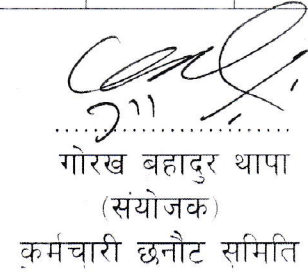 गोरख बहादुर थापा
(संयोजक)
कर्मचारी छनौट समिति